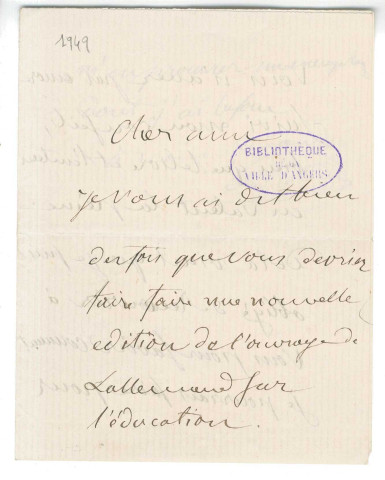 1949
Cher ami
BIBLIOTHÈQUE
DE LA
VILLE D'ANGERS
je vous ai dit bien
des fois que vous devriez
faire faire une nouvelle
edition de l'ouvrage de
Lallemand sur
l'éducation.